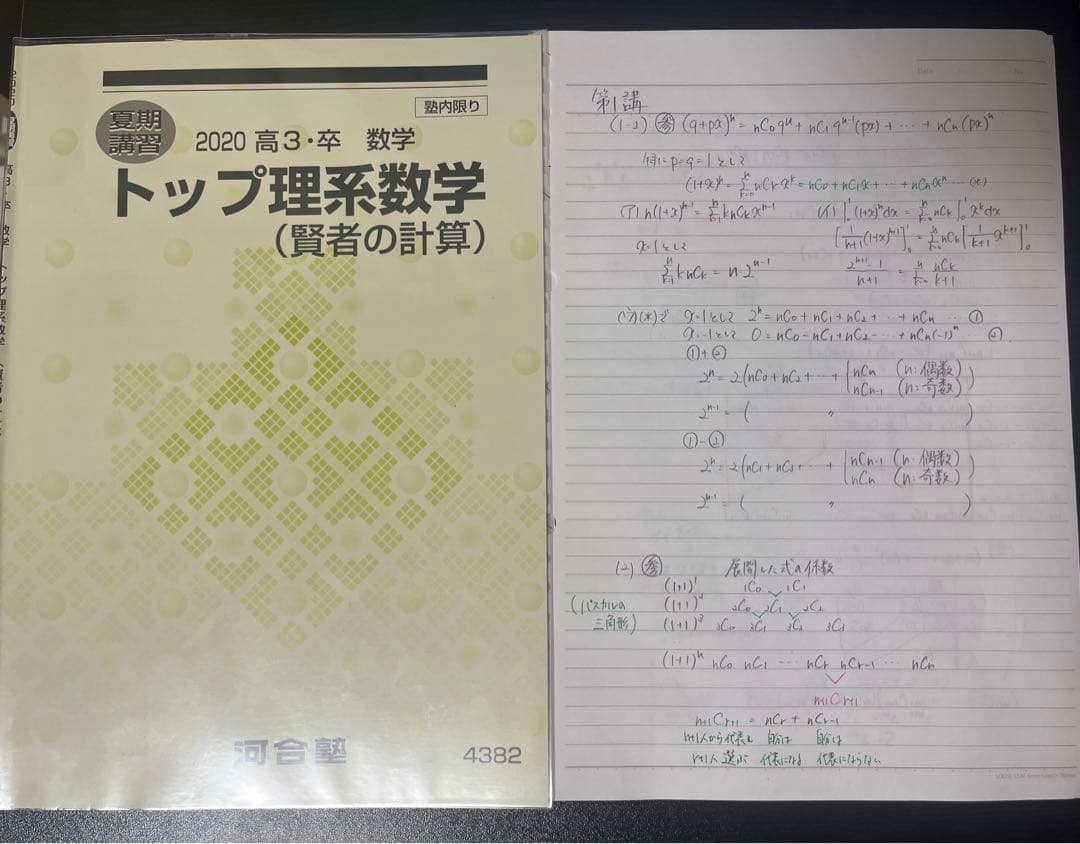 夏期
講習
塾内限り
2020 高3・卒 数学
トップ理系数学
(賢者の計算)
河合塾
4382
Date No.
第1講
(1-2) 参 (q+px)^n = nC0 q^n + nC1 q^{n-1}(px) + … + nCn (px)^n
特に p=q=1として
(1+x)^n = Σ_{k=0}^n nCk x^k = nC0 + nC1x + … + nCnx^n … (*)
(ア) n(1+x)^{n-1} = Σ_{k=1}^n k nCk x^{k-1} (イ) ∫_0^1 (1+x)^n dx = Σ_{k=0}^n nCk ∫_0^1 x^k dx
x=1として [1/(n+1) (1+x)^{n+1}]_0^1 = Σ_{k=0}^n nCk [1/(k+1) x^{k+1}]_0^1
Σ_{k=1}^n k nCk = n・2^{n-1} (2^{n+1}-1)/(n+1) = Σ_{k=0}^n nCk/(k+1)
(ウ) (*)で x=1として 2^n = nC0 + nC1 + nC2 + … + nCn … ①
x=-1として 0 = nC0 - nC1 + nC2 - … + nCn(-1)^n … ②
①+②
2^n = 2(nC0 + nC2 + … + { nCn (n:偶数)
nCn-1 (n:奇数) )
2^{n-1} = ( 〃 )
①-②
2^n = 2(nC1 + nC3 + … + { nCn-1 (n:偶数)
nCn (n:奇数) )
2^{n-1} = ( 〃 )
(2) 参 展開した式の係数
(1+1)^1 1C0 1C1
(パスカルの (1+1)^2 2C0 2C1 2C2
三角形) (1+1)^3 3C0 3C1 3C2 3C3
(1+1)^n nC0 nC1 … nCr nCr-1 … nCn
n+1Cr+1
n+1Cr+1 = nCr + nCr-1
n+1人から代表を 自分は 自分は
r+1人選ぶ 代表になる 代表にならない